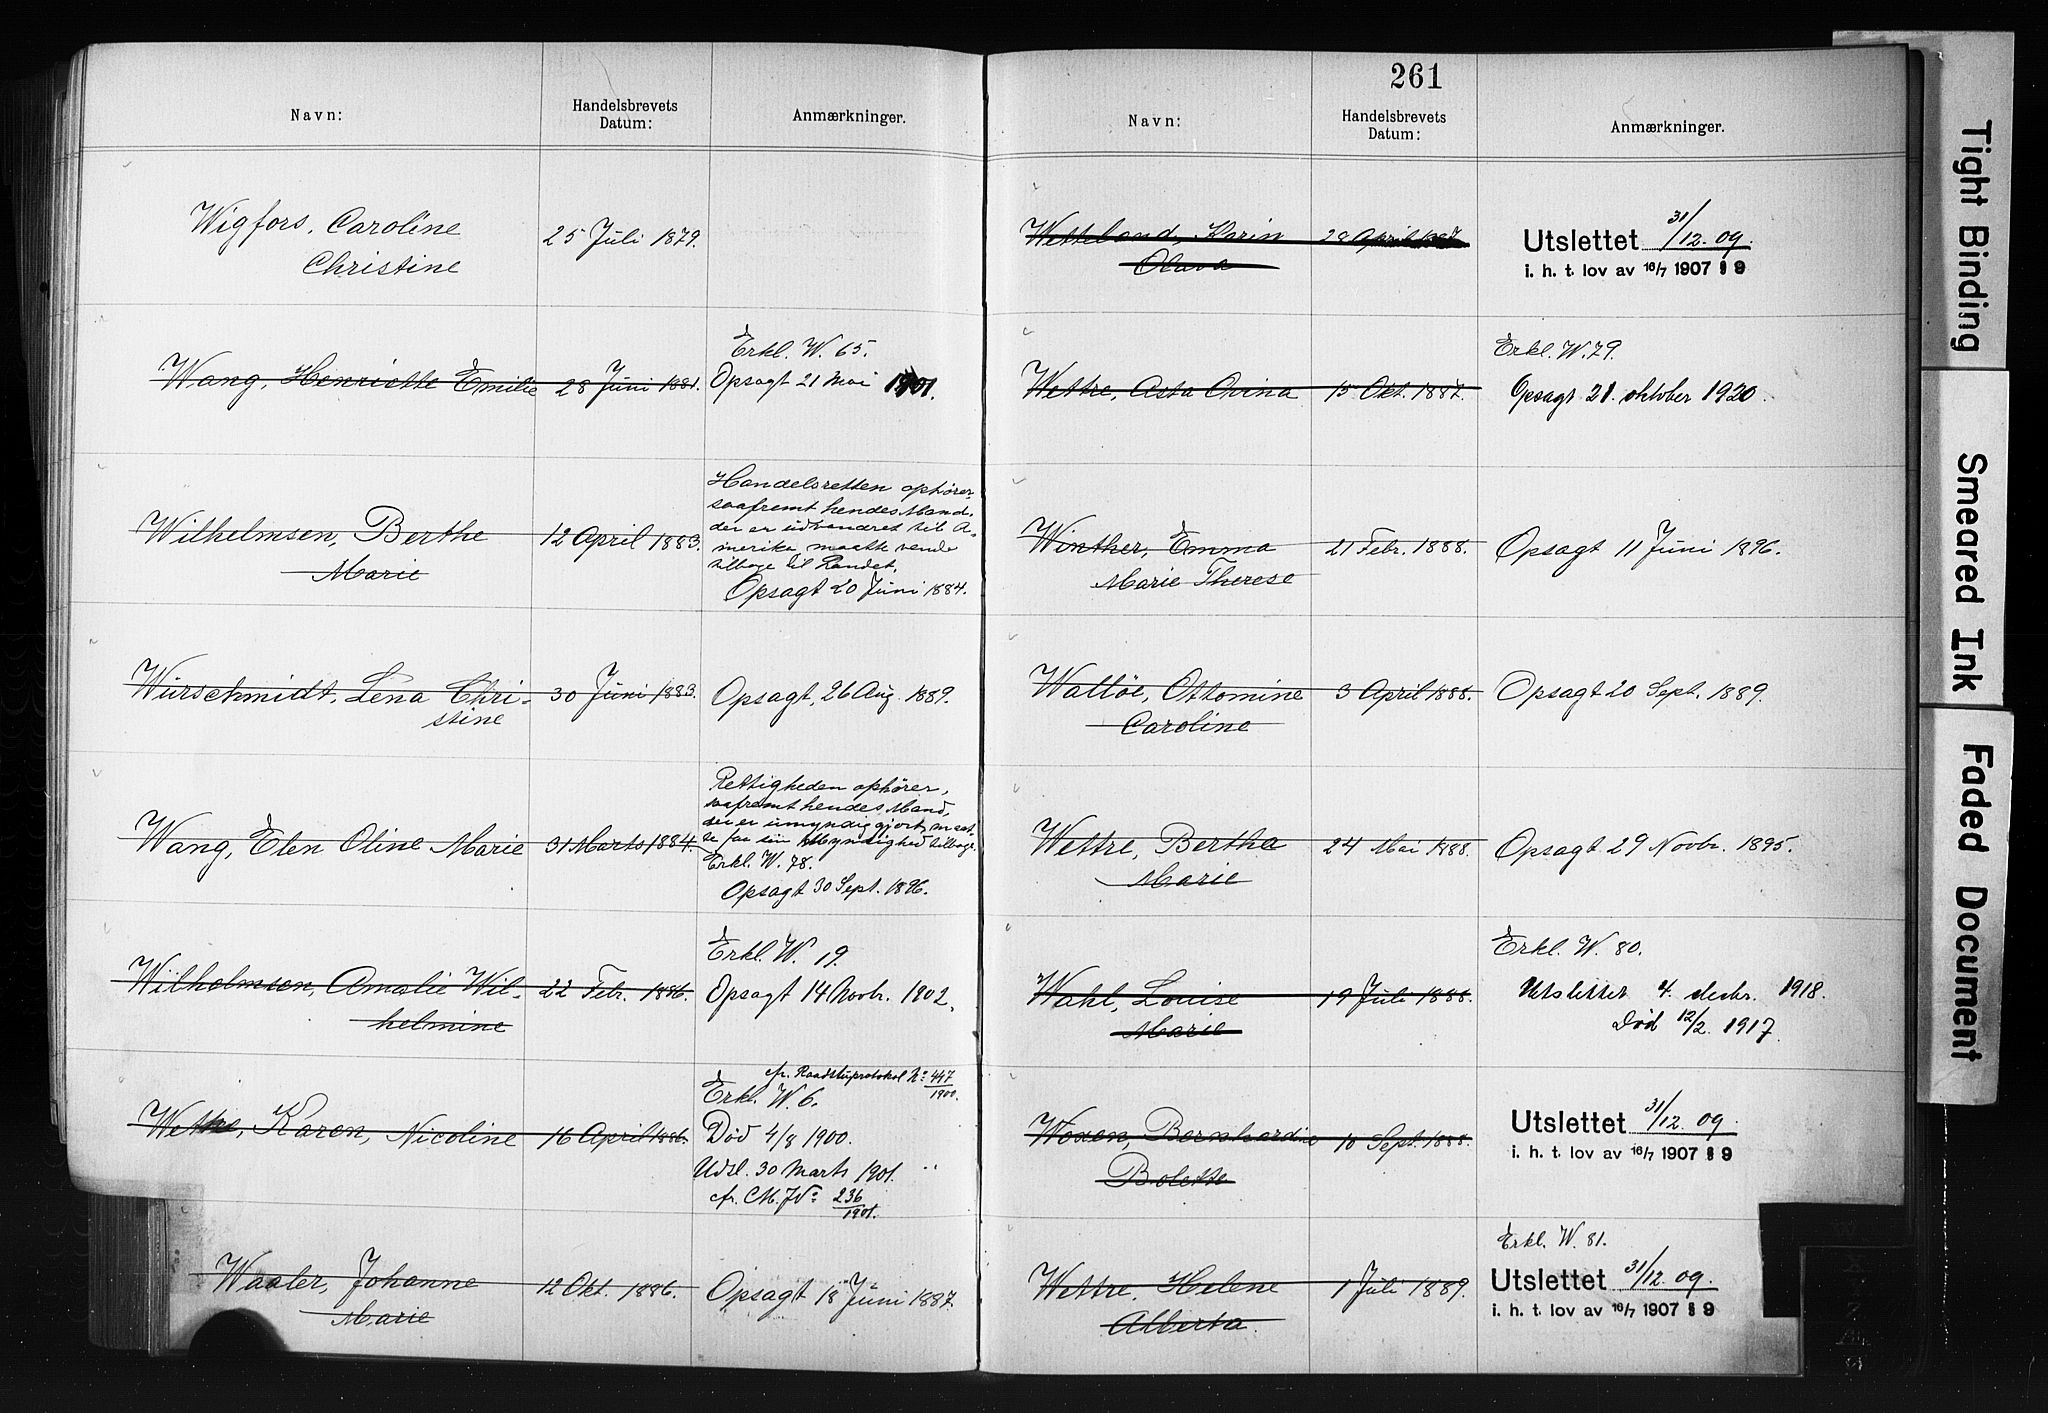 Navn:
Handelsbrevets
Datum:
Anmærkninger.
Wigfors, Caroline
Christine
25 Juli 1879.
Wang, Henriette Emilie
28 Juni 1881.
Erkl. W. 65.
Opsagt 21 Mai 1901.
Wilhelmsen, Berthe
Marie
12 April 1883.
Handelsretten ophører
saafremt hendes Mand,
der er udvandret til A-
merika maatte vende
tilbage til Landet.
Opsagt 20 Juni 1884.
Würschmidt, Lena Chri-
stine
30 Juni 1883.
Opsagt, 26 Aug. 1889.
Wang, Elen Oline Marie
31 Marts 1884.
Rettigheden ophører,
saafremt hendes Mand,
der er umyndiggjort, maat-
te faa sin Myndighed tilbage.
Erkl. W. 78.
Opsagt 30 Sept. 1896.
Wilhelmsen, Amalie Wil-
helmine
22 Febr. 1886.
Erkl. W. 19.
Opsagt 14 Novbr. 1902.
Karen, Nicoline
16 April 1886.
cfr. Raadstuprotokol No 447/1900.
Erkl. W. 6.
Død 4/8 1900.
Udsl. 30 Marts 1901.
cfr. CM. J No 236/1901.
Waaler, Johanne
Marie
12 Okt. 1886.
Opsagt 18 Juni 1887.
261
Navn:
Handelsbrevets
Datum:
Anmærkninger.
Wetteland, Karin
Olava
28 April 1887.
Utslettet 31/12.09.
i. h. t. lov av 16/7 1907 § 9
Wettre, Asta Ovina
15 Okt. 1887.
Erkl. W. 79.
Opsagt 21. oktober 1920.
Winther, Emma
Marie Therese
21 Febr. 1888.
Opsagt 11 Juni 1896.
Walløe, Ottomine
Caroline
3 April 1888.
Opsagt 20 Sept. 1889.
Wettre, Berthe
Marie
24 Mai 1888.
Opsagt 29 Novbr. 1895.
Wahl, Louise
Marie
19 Juli 1888.
Erkl. W. 80.
Utslettet 4. decbr. 1918.
Død 12/2. 1917.
Woxen, Bernhardine
Bolette
10 Sept. 1888.
Utslettet 31/12.09.
i. h. t. lov av 16/7 1907 § 9
Wettre, Helene
Alberta
1 Juli 1889.
Erkl. W. 81.
Utslettet 31/12.09.
i. h. t. lov av 16/7 1907 § 9
Tight Binding
Smeared Ink
Faded Document